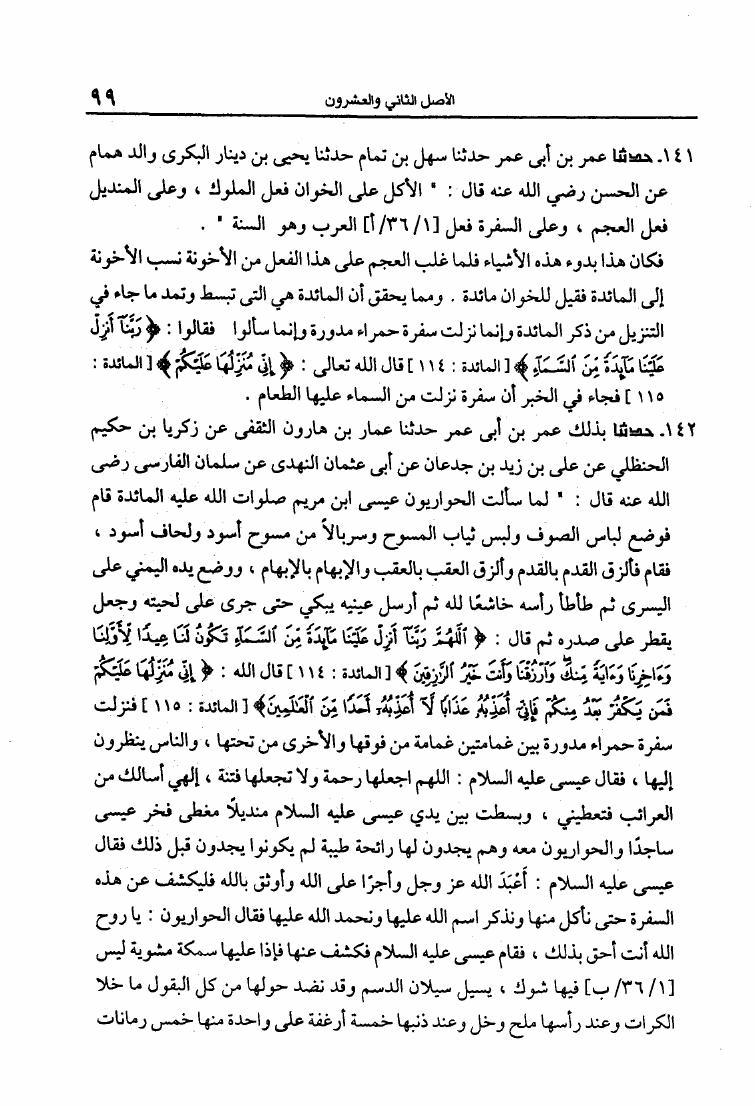 الأصل الثاني والعشرون ٩٩
١٤١ـ حدثنا عمر بن أبى عمر حدثنا سهل بن تمام حدثنا يحيى بن دينار البكرى والد همام
عن الحسن رضي الله عنه قال : " الأكل على الخوان فعل الملوك ، وعلى المنديل
فعل العجم ، وعلى السفرة فعل [١/ ٣٦/ أ] العرب وهو السنة " .
فكان هذا بدوء هذه الأشياء فلما غلب العجم على هذا الفعل من الأخونة نسب الأخونة
إلى المائدة فقيل للخوان مائدة . ومما يحقق أن المائدة هي التى تبسط وتمد ما جاء في
التنزيل من ذكر المائدة وإنما نزلت سفرة حمراء مدورة وإنما سألوا فقالوا : ﴿ رَبَّنَآ أَنزِلْ
عَلَيْنَا مَآئِدَةً مِّنَ ٱلسَّمَآءِ ﴾ [ المائدة : ١١٤ ] قال الله تعالى : ﴿ إِنِّى مُنَزِّلُهَا عَلَيْكُمْ ﴾ [ المائدة :
١١٥ ] فجاء في الخبر أن سفرة نزلت من السماء عليها الطعام .
١٤٢ـ حدثنا بذلك عمر بن أبى عمر حدثنا عمار بن هارون الثقفى عن زكريا بن حكيم
الحنظلي عن على بن زيد بن جدعان عن أبى عثمان النهدى عن سلمان الفارسى رضى
الله عنه قال : " لما سألت الحواريون عيسى ابن مريم صلوات الله عليه المائدة قام
فوضع لباس الصوف ولبس ثياب المسوح وسربالاً من مسوح أسود ولحاف أسود ،
فقام فألزق القدم بالقدم وألزق العقب بالعقب والإبهام بالإبهام ، ووضع يده اليمني على
اليسرى ثم طأطأ رأسه خاشعًا لله ثم أرسل عينيه يبكي حتى جرى على لحيته وجعل
يقطر على صدره ثم قال : ﴿ ٱللَّهُمَّ رَبَّنَآ أَنزِلْ عَلَيْنَا مَآئِدَةً مِّنَ ٱلسَّمَآءِ تَكُونُ لَنَا عِيدًا لِّأَوَّلِنَا
وَءَاخِرِنَا وَءَايَةً مِّنكَ وَٱرْزُقْنَا وَأَنتَ خَيْرُ ٱلرَّٰزِقِينَ ﴾ [ المائدة : ١١٤ ] قال الله : ﴿ إِنِّى مُنَزِّلُهَا عَلَيْكُمْ
فَمَن يَكْفُرْ بَعْدُ مِنكُمْ فَإِنِّىٓ أُعَذِّبُهُۥ عَذَابًا لَّآ أُعَذِّبُهُۥٓ أَحَدًا مِّنَ ٱلْعَٰلَمِينَ﴾ [ المائدة : ١١٥ ] فنزلت
سفرة حمراء مدورة بين غمامتين غمامة من فوقها والأخرى من تحتها ، والناس ينظرون
إليها ، فقال عيسى عليه السلام : اللهم اجعلها رحمة ولا تجعلها فتنة ، إلهي أسالك من
العرائب فتعطيني ، وبسطت بين يدي عيسى عليه السلام منديلاً مغطى فخر عيسى
ساجدًا والحواريون معه وهم يجدون لها رائحة طيبة لم يكونوا يجدون قبل ذلك فقال
عيسى عليه السلام : أَعْبَدَ الله عز وجل وأجرًا على الله وأوثق بالله فليكشف عن هذه
السفرة حتى نأكل منها ونذكر اسم الله عليها ونحمد الله عليها فقال الحواريون : يا روح
الله أنت أحق بذلك ، فقام عيسى عليه السلام فكشف عنها فإذا عليها سمكة مشوية ليس
[١/ ٣٦/ ب] فيها شوك ، يسيل سيلان الدسم وقد نضد حولها من كل البقول ما خلا
الكرات وعند رأسها ملح وخل وعند ذنبها خمسة أرغفة على واحدة منها خمس رمانات